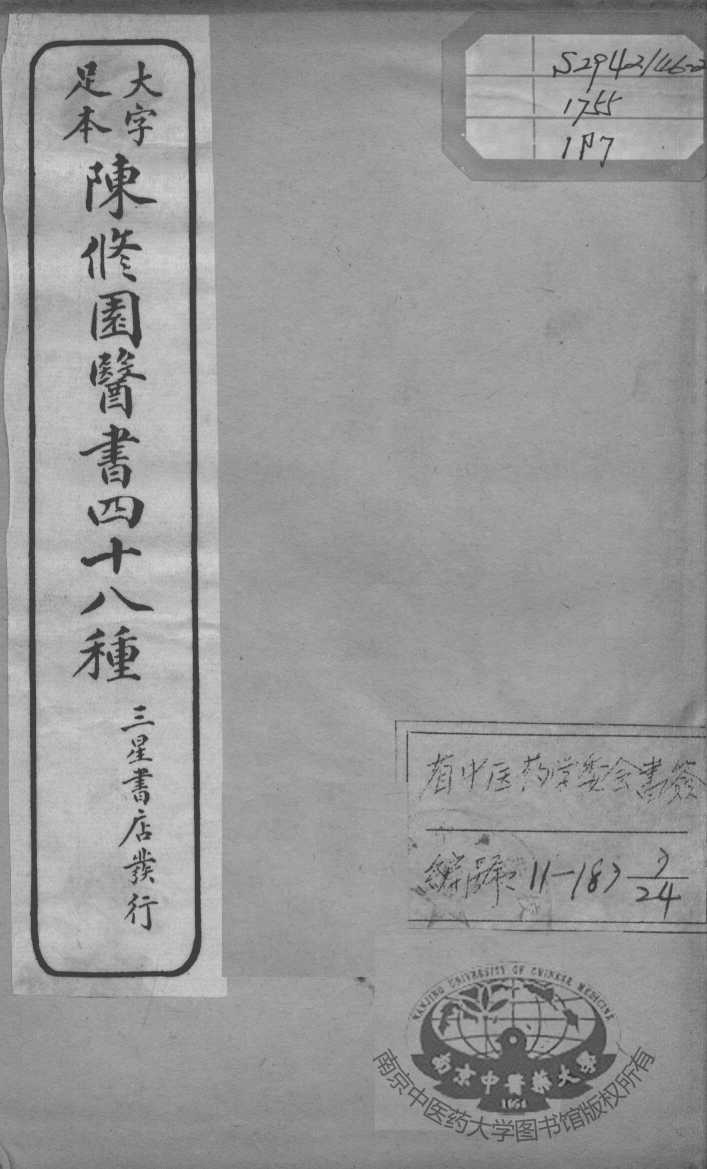 大字
足本
陳修園醫書四十八種
三星書店發行
1755
1P7
省中医药学委会書簽
編號: 11-187 7/24
NANJING UNIVERSITY OF CHINESE MEDICINE
南京中醫藥大學
1954
南京中医药大学图书馆版权所有